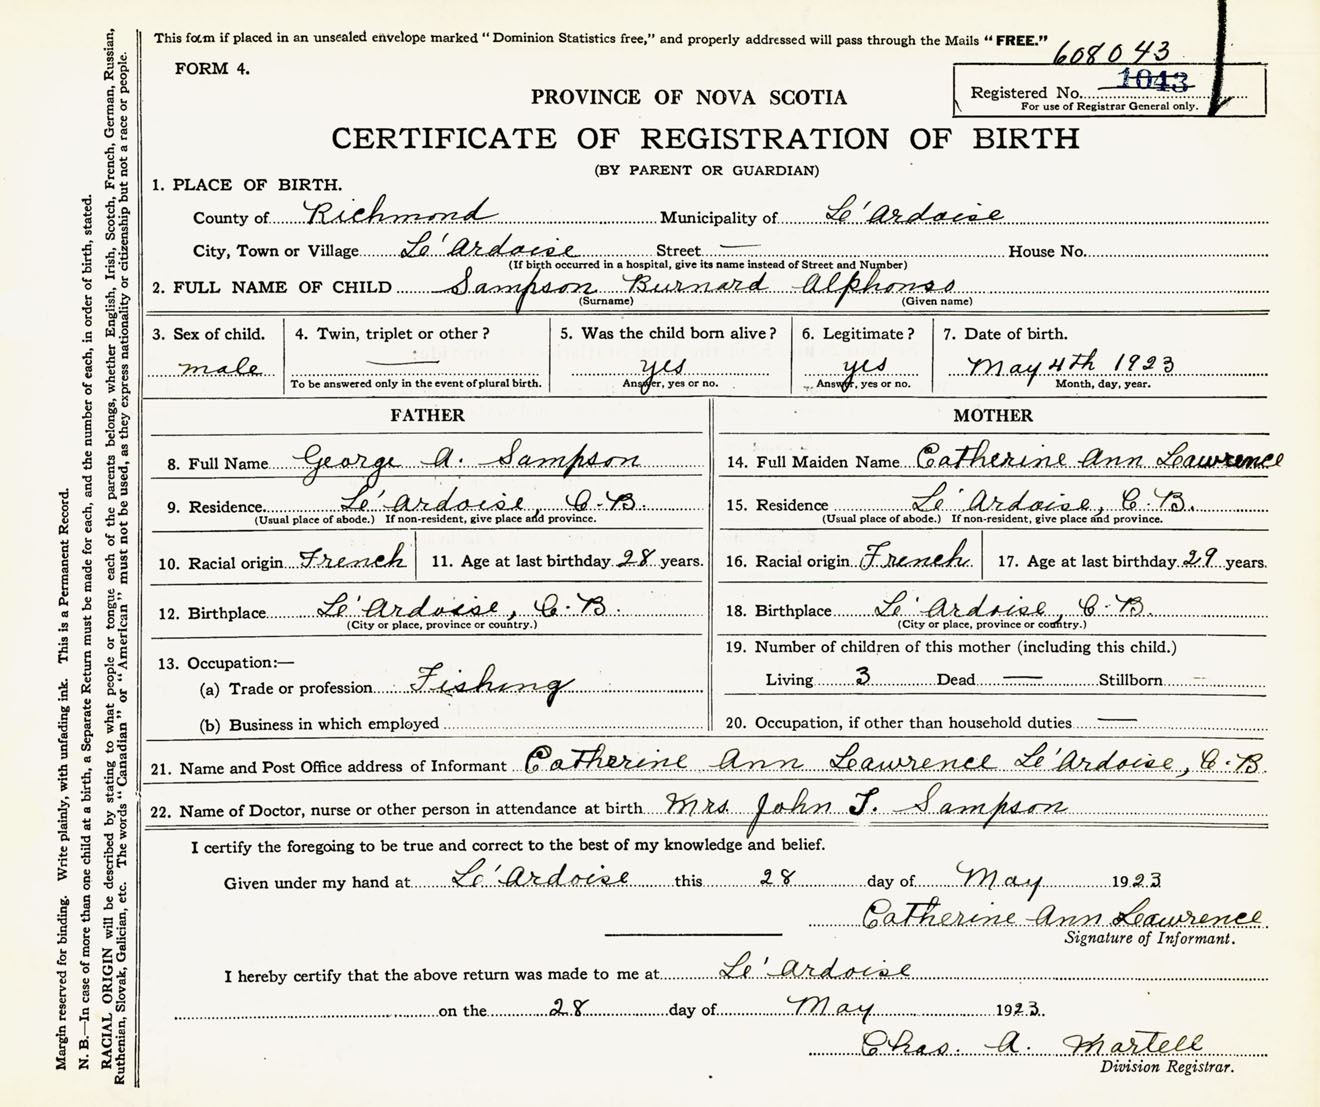 This form if placed in an unsealed envelope marked "Dominion Statistics free," and properly addressed will pass through the Mails "FREE."
608043
FORM 4.
Registered No. 1043
For use of Registrar General only.
PROVINCE OF NOVA SCOTIA
CERTIFICATE OF REGISTRATION OF BIRTH
(BY PARENT OR GUARDIAN)
1. PLACE OF BIRTH.
County of Richmond Municipality of Le'Ardoise
City, Town or Village Le'Ardoise Street — House No.
(If birth occurred in a hospital, give its name instead of Street and Number)
2. FULL NAME OF CHILD Sampson Burnard Alphonso
(Surname) (Given name)
3. Sex of child. 4. Twin, triplet or other? 5. Was the child born alive? 6. Legitimate? 7. Date of birth.
male — yes yes May 4th 1923
To be answered only in the event of plural birth. Answer, yes or no. Answer, yes or no. Month, day, year.
FATHER MOTHER
8. Full Name George A. Sampson 14. Full Maiden Name Catherine Ann Lawrence
9. Residence Le'Ardoise, C.B. 15. Residence Le'Ardoise, C.B.
(Usual place of abode.) If non-resident, give place and province. (Usual place of abode.) If non-resident, give place and province.
10. Racial origin French 11. Age at last birthday 28 years. 16. Racial origin French 17. Age at last birthday 29 years.
12. Birthplace Le'Ardoise, C.B. 18. Birthplace Le'Ardoise, C.B.
(City or place, province or country.) (City or place, province or country.)
19. Number of children of this mother (including this child.)
13. Occupation:—
Living 3 Dead — Stillborn —
(a) Trade or profession Fishing
(b) Business in which employed 20. Occupation, if other than household duties —
21. Name and Post Office address of Informant Catherine Ann Lawrence Le'Ardoise, C.B.
22. Name of Doctor, nurse or other person in attendance at birth Mrs John T. Sampson
I certify the foregoing to be true and correct to the best of my knowledge and belief.
Given under my hand at Le'Ardoise this 28 day of May 1923
Catherine Ann Lawrence
Signature of Informant.
I hereby certify that the above return was made to me at Le'Ardoise
on the 28 day of May 1923.
Chas. A. Martell
Division Registrar.
Margin reserved for binding. Write plainly, with unfading ink. This is a Permanent Record.
N. B.—In case of more than one child at a birth, a Separate Return must be made for each, and the number of each, in order of birth, stated.
RACIAL ORIGIN will be described by stating to what people or tongue each of the parents belongs, whether English, Irish, Scotch, French, German, Russian,
Ruthenian, Slovak, Galician, etc. The words "Canadian" or "American" must not be used, as they express nationality or citizenship but not a race or people.